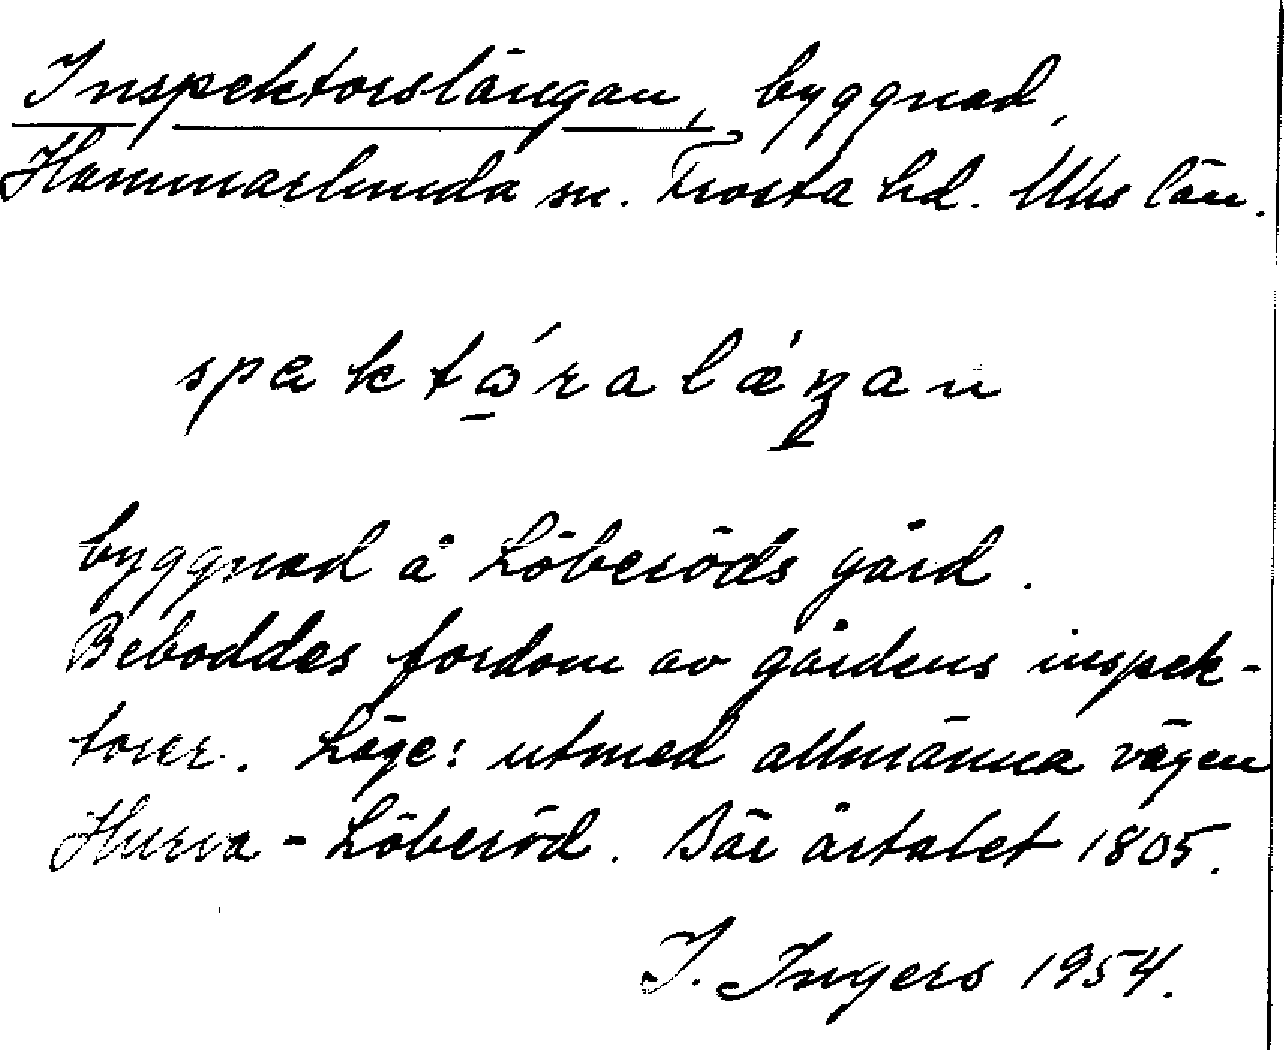 Inspektorslängan, byggnad,
Hammarlunda sn. Frosta hd. Mhs län.
byggnad å Löberöds gård.
Beboddes fordom av gårdens inspek-
torer. Läge: utmed allmänna vägen
Hurva - Löberöd. Bär årtalet 1805.
I. Ingers 1954.